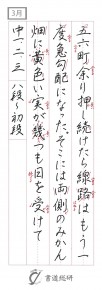 3月
五六町余り押し続けたら線路はもう一
度急勾配になった。そこには両側のみかん
畑に黄色い実が幾つも日を受けて
中一、二、三 八段～初段
書道総研